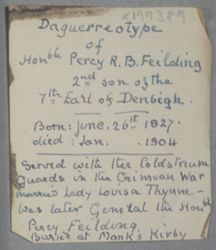 x199389
Daguerreotype
of
Honble Percy R.B. Feilding
2nd son of the
7th Earl of Denbigh.
Born: June. 26th 1827.
died: Jan. 1904
Served with the Coldstream
Guards in the Crimean War
married Lady Louisa Thynne -
was later General the Honble
Percy Feilding
Buried at Monk's Kirby